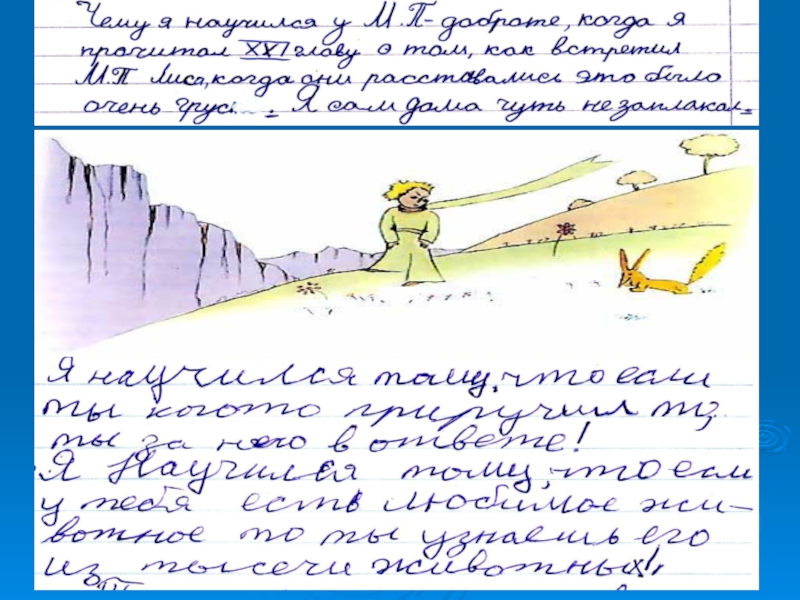 Чему я научился у М.П-доброте, когда я
прочитал XXI главу о том, как встретил
М.П Лиса, когда они расставались это было
очень Я сам дома чуть незаплакал.
Я научился тому, что если
ты когото приручил то,
ты за него в ответе!
Я Научился тому, что если
у тебя есть любимое жи-
вотное то ты узнаешь его
из тысечи животных!